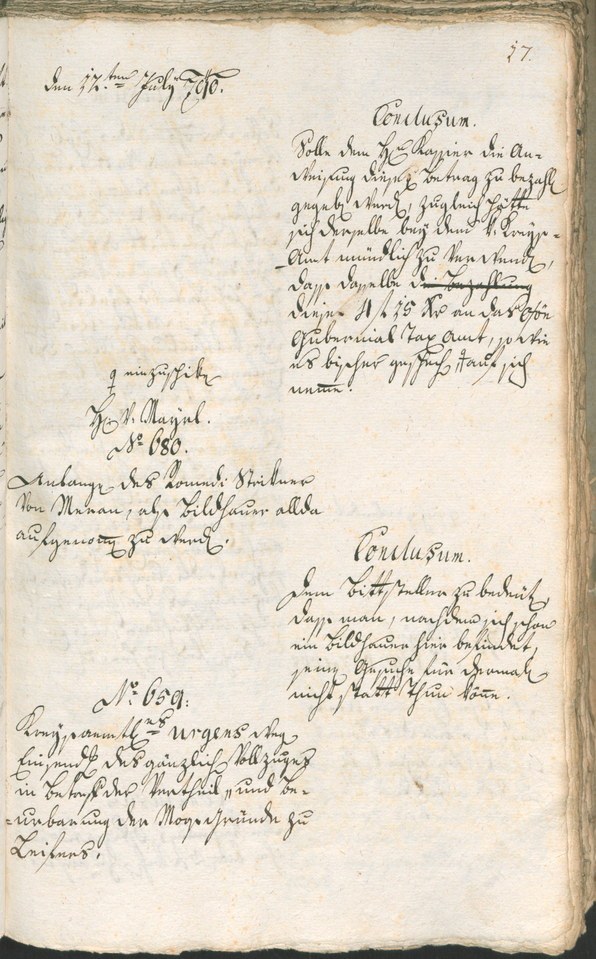 17.
den 12.ten July 790.
Conclusum.
Solle dem H. Kassier die An-
weisung dieses Betrag zu bezahlen
gegeben werden, zugleich hätte
sich derselbe bey dem K. Kreys-
Amt mündlich zu verwenden,
dass dasselbe die Bezahlung
dieser 4 f 25 Kr an das
Gubernial Tax Amt, so wie
es bisher geschehen, auf sich
nemme.
einzuschiken
H. v. Mayrl.
No 680.
Anlangen des Romedi Strikner
von Meran, als Bildhauer allda
aufgenommen zu werden.
Conclusum.
Dem Bittsteller zu bedeuten,
dass man, nachdem sich schon
ein Bildhauer hier befindet,
seinem Gesuche für dermalen
nicht statt thun könne.
No 659:
Kreysaemtliches urgens weg.
Einsendung des gänzlichen Vollzuges
in Betref der Vertheil- und Be-
urbarung der Moos Gründe zu
Leifers.